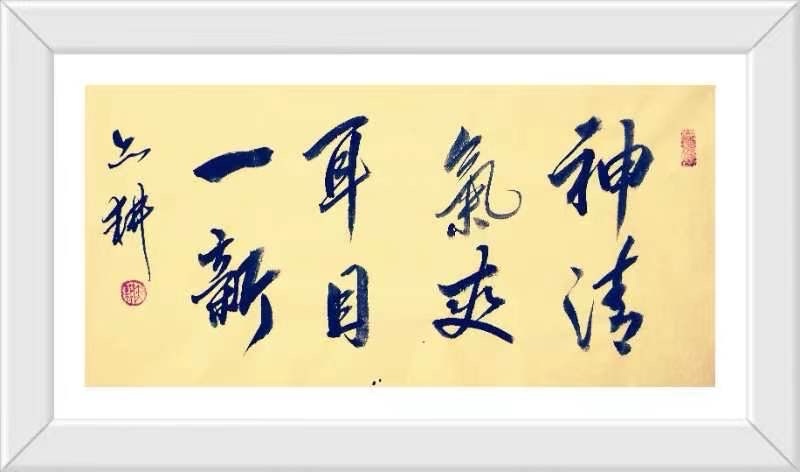 神清
氣爽
耳目
一新
耕